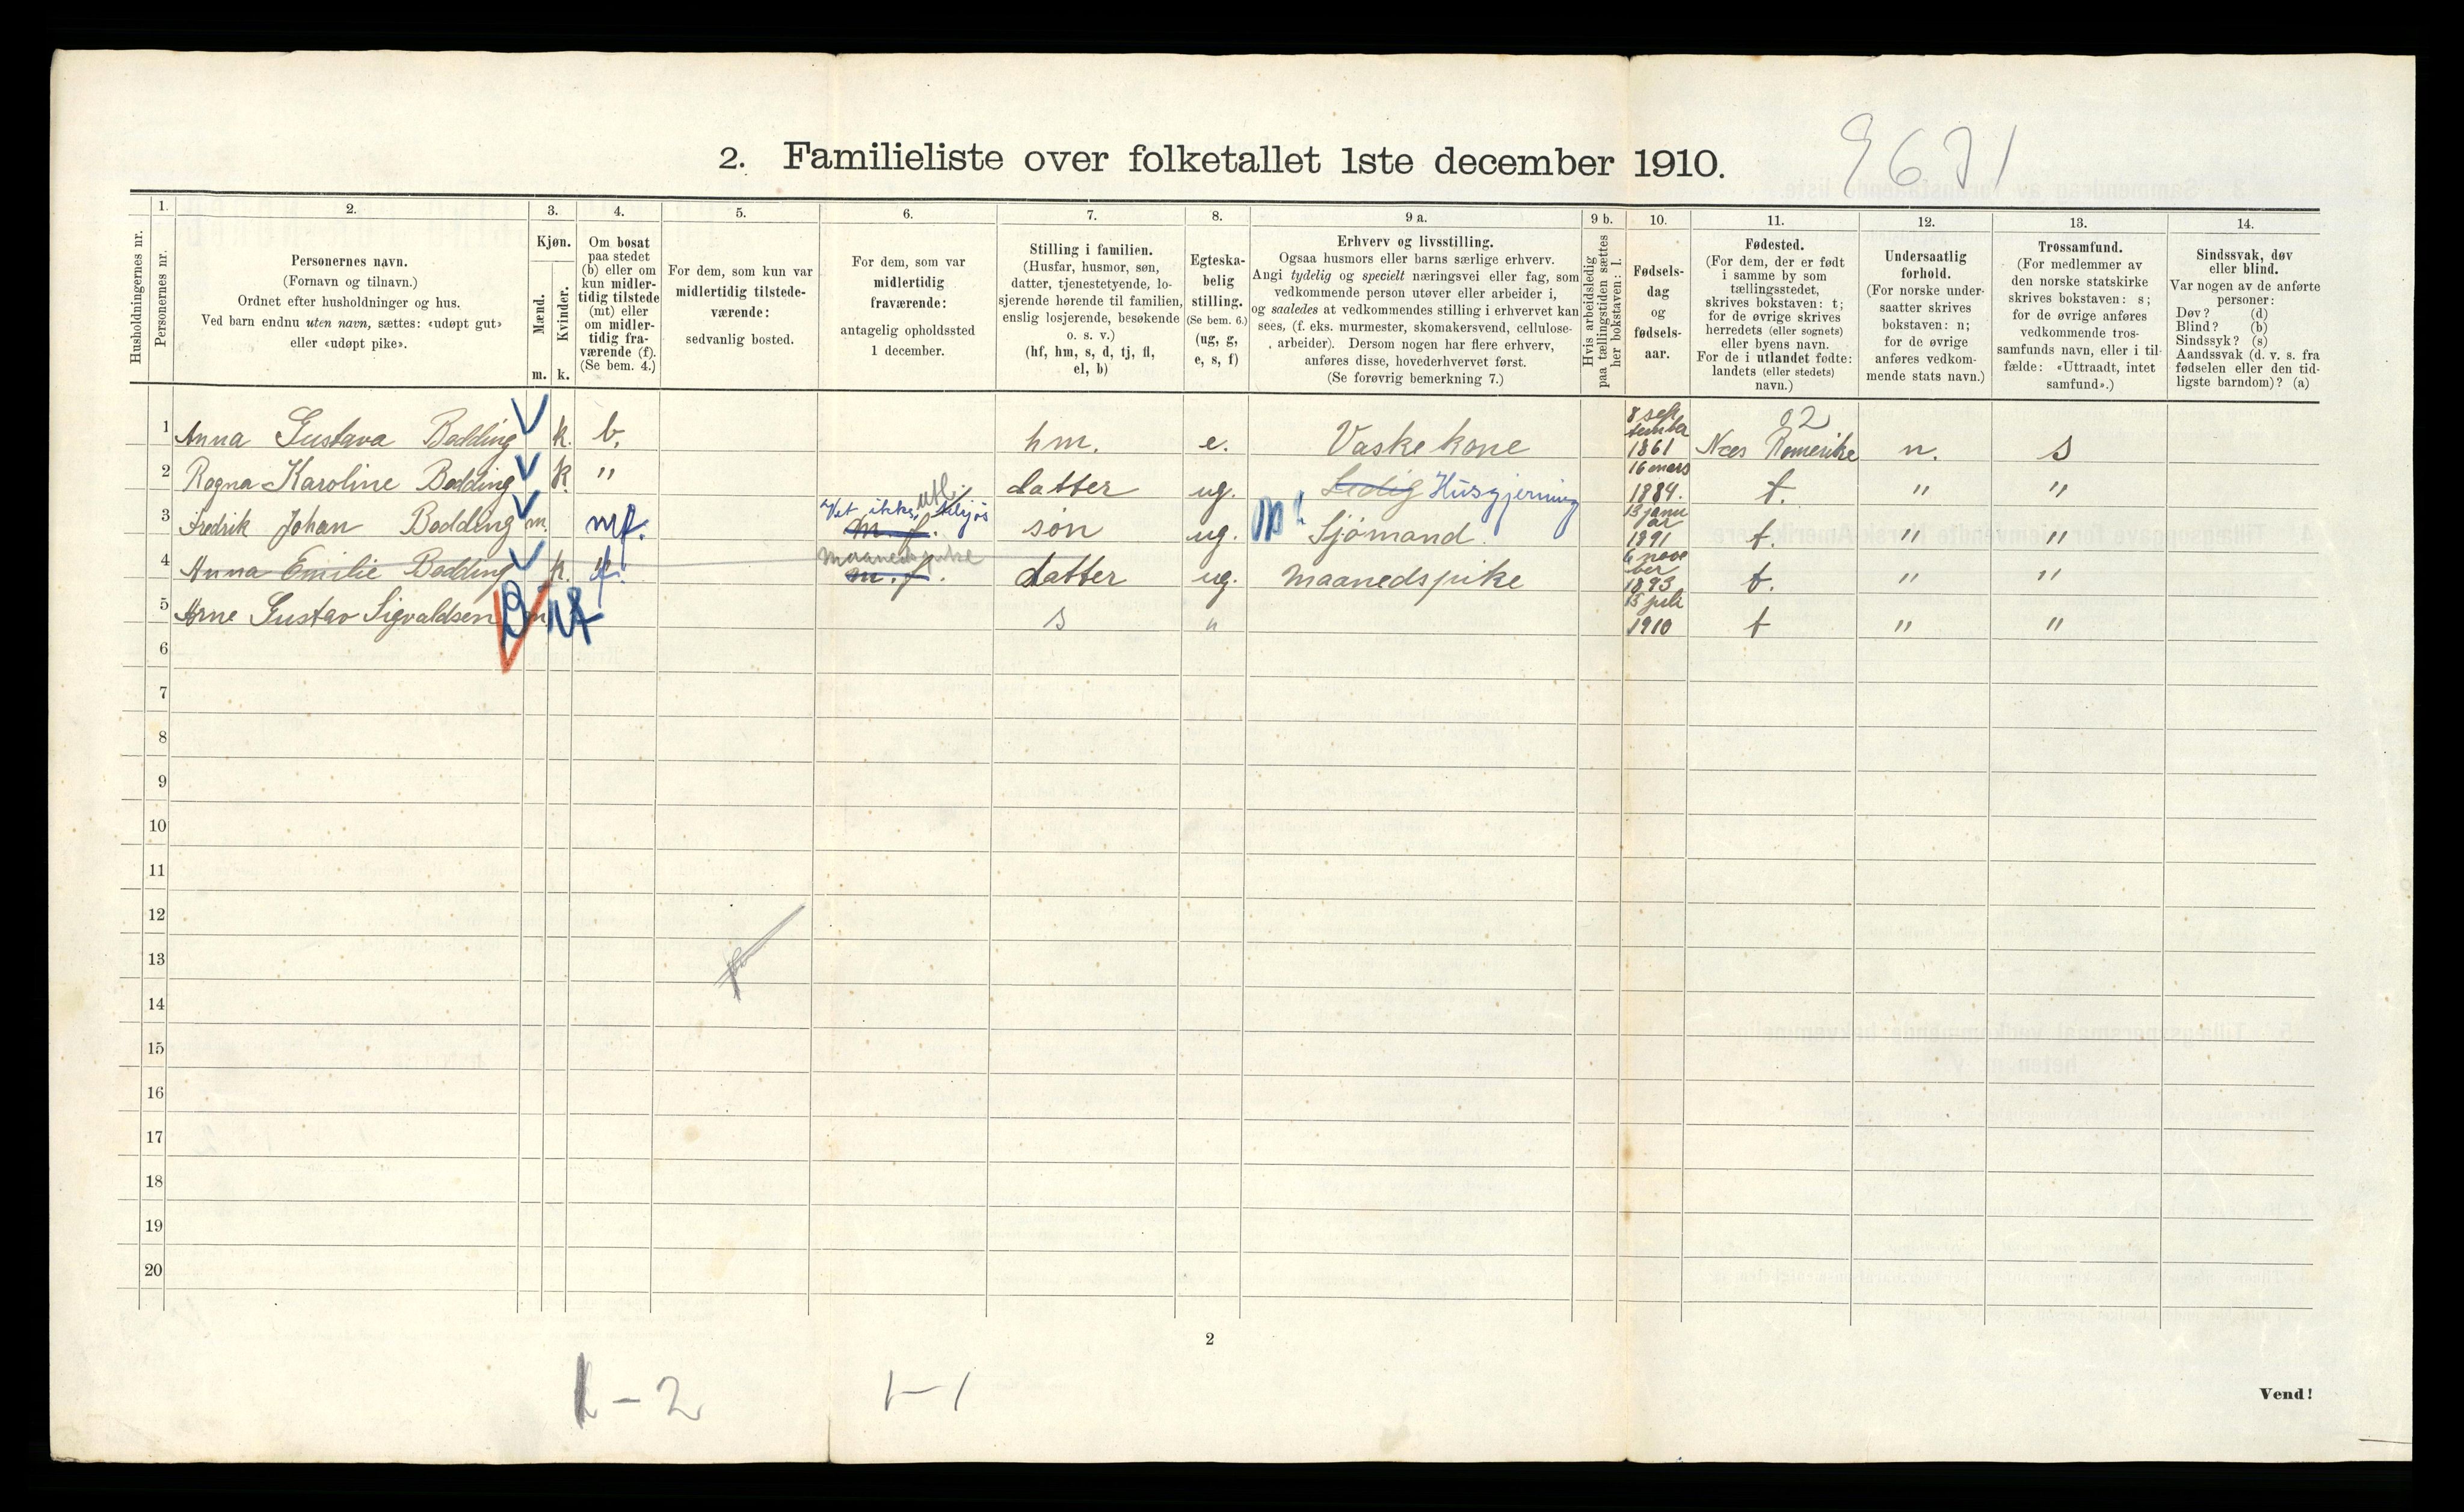 9671
2. Familieliste over folketallet 1ste december 1910.
1. 2. 3. 4. 5. 6. 7. 8. 9 a. 9 b. 10. 11. 12. 13. 14.
Husholdningernes nr.
Personernes nr.
Personernes navn.
(Fornavn og tilnavn.)
Ordnet efter husholdninger og hus.
Ved barn endnu uten navn, sættes: «udøpt gut»
eller «udøpt pike».
Kjøn.
Mænd.
Kvinder.
m. k.
Om bosat
paa stedet
(b) eller om
kun midler-
tidig tilstede
(mt) eller
om midler-
tidig fra-
værende (f).
(Se bem. 4.)
For dem, som kun var
midlertidig tilstede-
værende:
sedvanlig bosted.
For dem, som var
midlertidig
fraværende:
antagelig opholdssted
1 december.
Stilling i familien.
(Husfar, husmor, søn,
datter, tjenestetyende, lo-
sjerende hørende til familien,
enslig losjerende, besøkende
o. s. v.)
(hf, hm, s, d, tj, fl,
el, b)
Egteska-
belig
stilling.
(Se bem. 6.)
(ug, g,
e, s, f)
Erhverv og livsstilling.
Ogsaa husmors eller barns særlige erhverv.
Angi tydelig og specielt næringsvei eller fag, som
vedkommende person utøver eller arbeider i,
og saaledes at vedkommendes stilling i erhvervet kan
sees, (f. eks. murmester, skomakersvend, cellulose-
arbeider). Dersom nogen har flere erhverv,
anføres disse, hovederhvervet først.
(Se forøvrig bemerkning 7.)
Hvis arbeidsledig
paa tællingstiden sættes
her bokstaven: l.
Fødsels-
dag
og
fødsels-
aar.
Fødested.
(For dem, der er født
i samme by som
tællingsstedet,
skrives bokstaven: t;
for de øvrige skrives
herredets (eller sognets)
eller byens navn.
For de i utlandet fødte:
landets (eller stedets)
navn.)
Undersaatlig
forhold.
(For norske under-
saatter skrives
bokstaven: n;
for de øvrige
anføres vedkom-
mende stats navn.)
Trossamfund.
(For medlemmer av
den norske statskirke
skrives bokstaven: s;
for de øvrige anføres
vedkommende tros-
samfunds navn, eller i til-
fælde: «Uttraadt, intet
samfund».)
Sindssvak, døv
eller blind.
Var nogen av de anførte
personer:
Døv? (d)
Blind? (b)
Sindssyk? (s)
Aandssvak (d. v. s. fra
fødselen eller den tid-
ligste barndom)? (a)
1 Anna Gustava Bodding k. b. hm. e. Vaskekone 8 september 1861 02 Næs Romerike n. s
2 Ragna Karoline Bodding k. " datter ug. Ledig Husgjerning 16 mars 1884. t. " "
3 Fredrik Johan Bodding m. mf. Vet ikke, utl. m. f. søn ug. Sjømand. 13 januar 1891 t. " "
4 Anna Emilie Bodding k. f. maanedspike m. f. datter ug. maanedspike 6 november 1893 t. " "
5 Arne Gustav Sigvaldsen m s " 15 juli 1910 t " "
6
7
8
9
10
11
12
13
14
15
16
17
18
19
20
2
1-2 1-1
Vend!